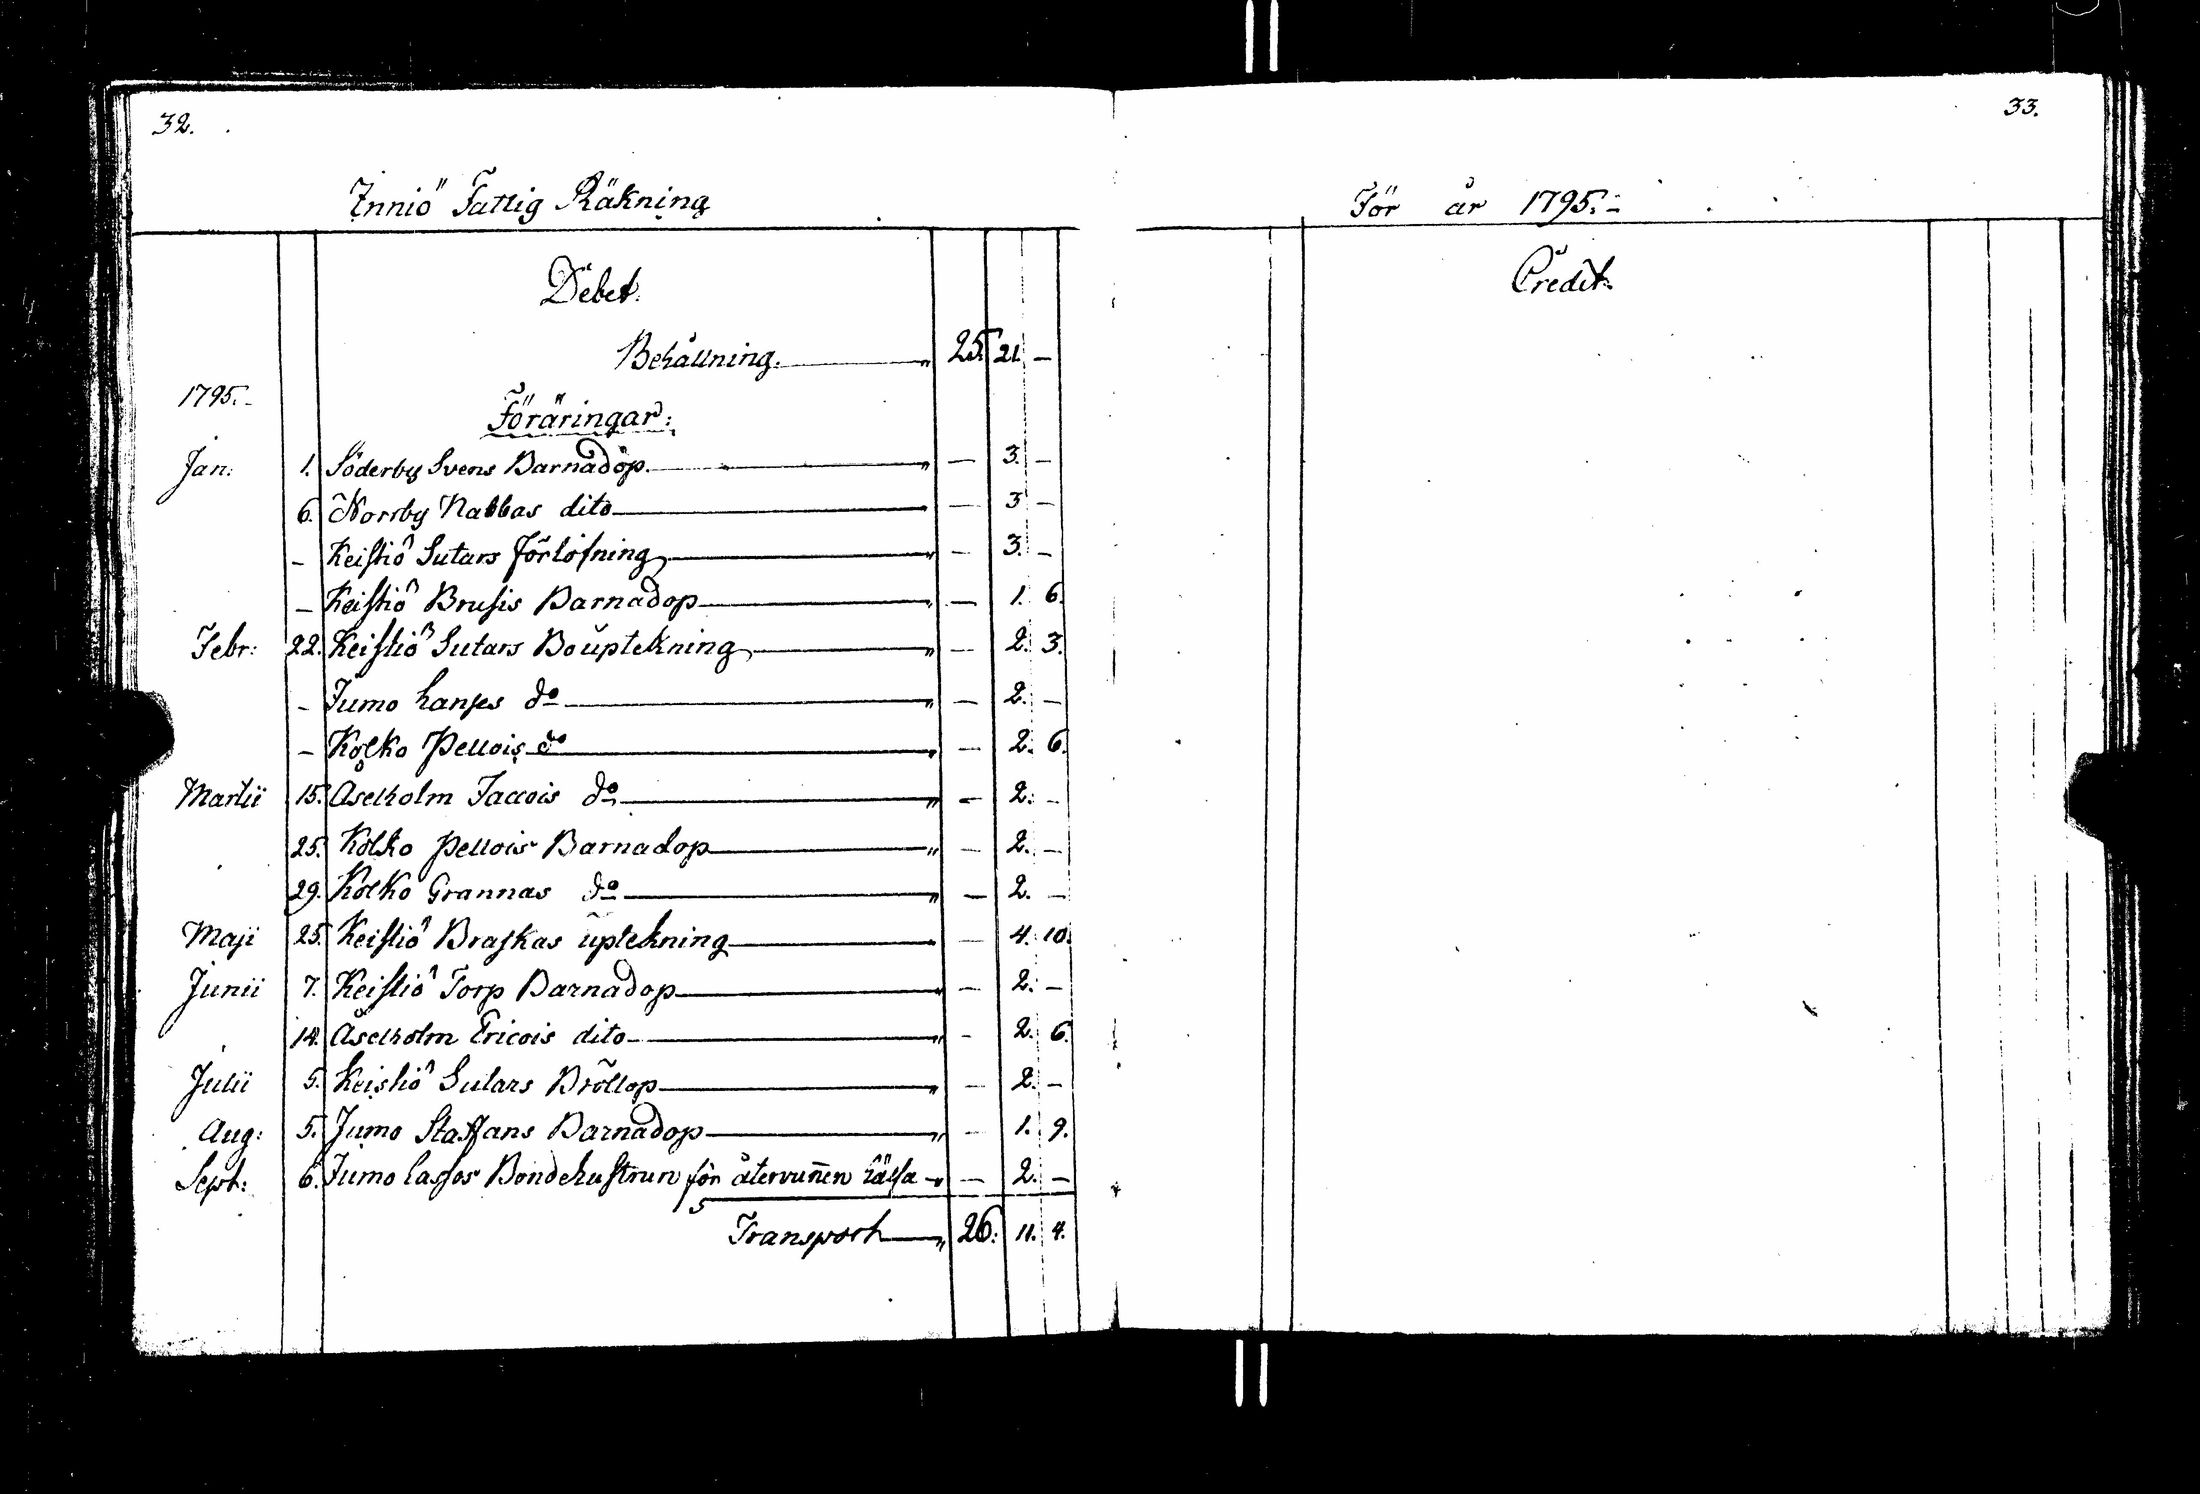 32.
Inniö Fattig Räkning
Debet.
Behållning. „ 25. 21. —
1795.
Föräringar:
Jan: 1. Söderby Svens Barnadop. „ — 3. —
6. Norrby Nabbas dito — 3 —
— Keistiö Sutars förlofning „ — 3. —
— Keistiö Brusis Barnadop „ — 1. 6.
Febr: 22. Keistiö Sutars Bouptekning „ — 2. 3.
— Jumo hanses do „ — 2. —
— Kolko Pellois do „ — 2. 6.
Martii 15. Åselholm Jaccois do „ — 2. —
25. Kolko Pellois Barnadop „ — 2. —
29. Kolko Grannas do „ — 2. —
Maji 25. Keistiö Braskas uptekning — 4. 10.
Junii 7. Keistiö Torp Barnadop „ — 2. —
14. Åselholm Ericois dito „ — 2. 6.
Julii 5. Keistiö Sutars Bröllop „ — 2. —
Aug: 5. Jumo Staffans Barnadop „ — 1. 9.
Sept: 6. Jumo Lassos Bondehustrun för återvunen hälsa „ — 2. —
Transport „ 26. 11. 4.
33.
För år 1795.
Credit.